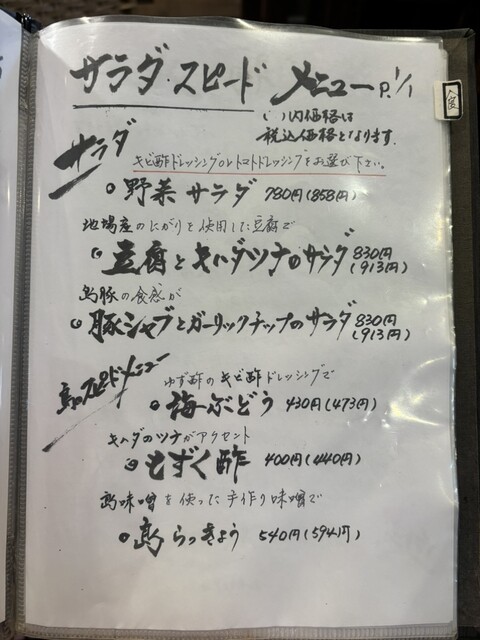 サラダ・スピード メニュー P.1/1
( )内価格は
税込価格となります。
サラダ
キビ酢ドレッシングorトマトドレッシングをお選び下さい。
野菜サラダ 780円(858円)
地場産のにがりを使用した豆腐で
豆腐とキハダツナのサラダ 830円
(913円)
島豚の食感が
豚シャブとガーリックチップのサラダ 830円
(913円)
島のスピードメニュー
ゆず酢のキビ酢ドレッシングで
海ぶどう 430円(473円)
キハダのツナがアクセント
もずく酢 400円(440円)
島味噌を使った手作り味噌で
島らっきょう 540円(594円)